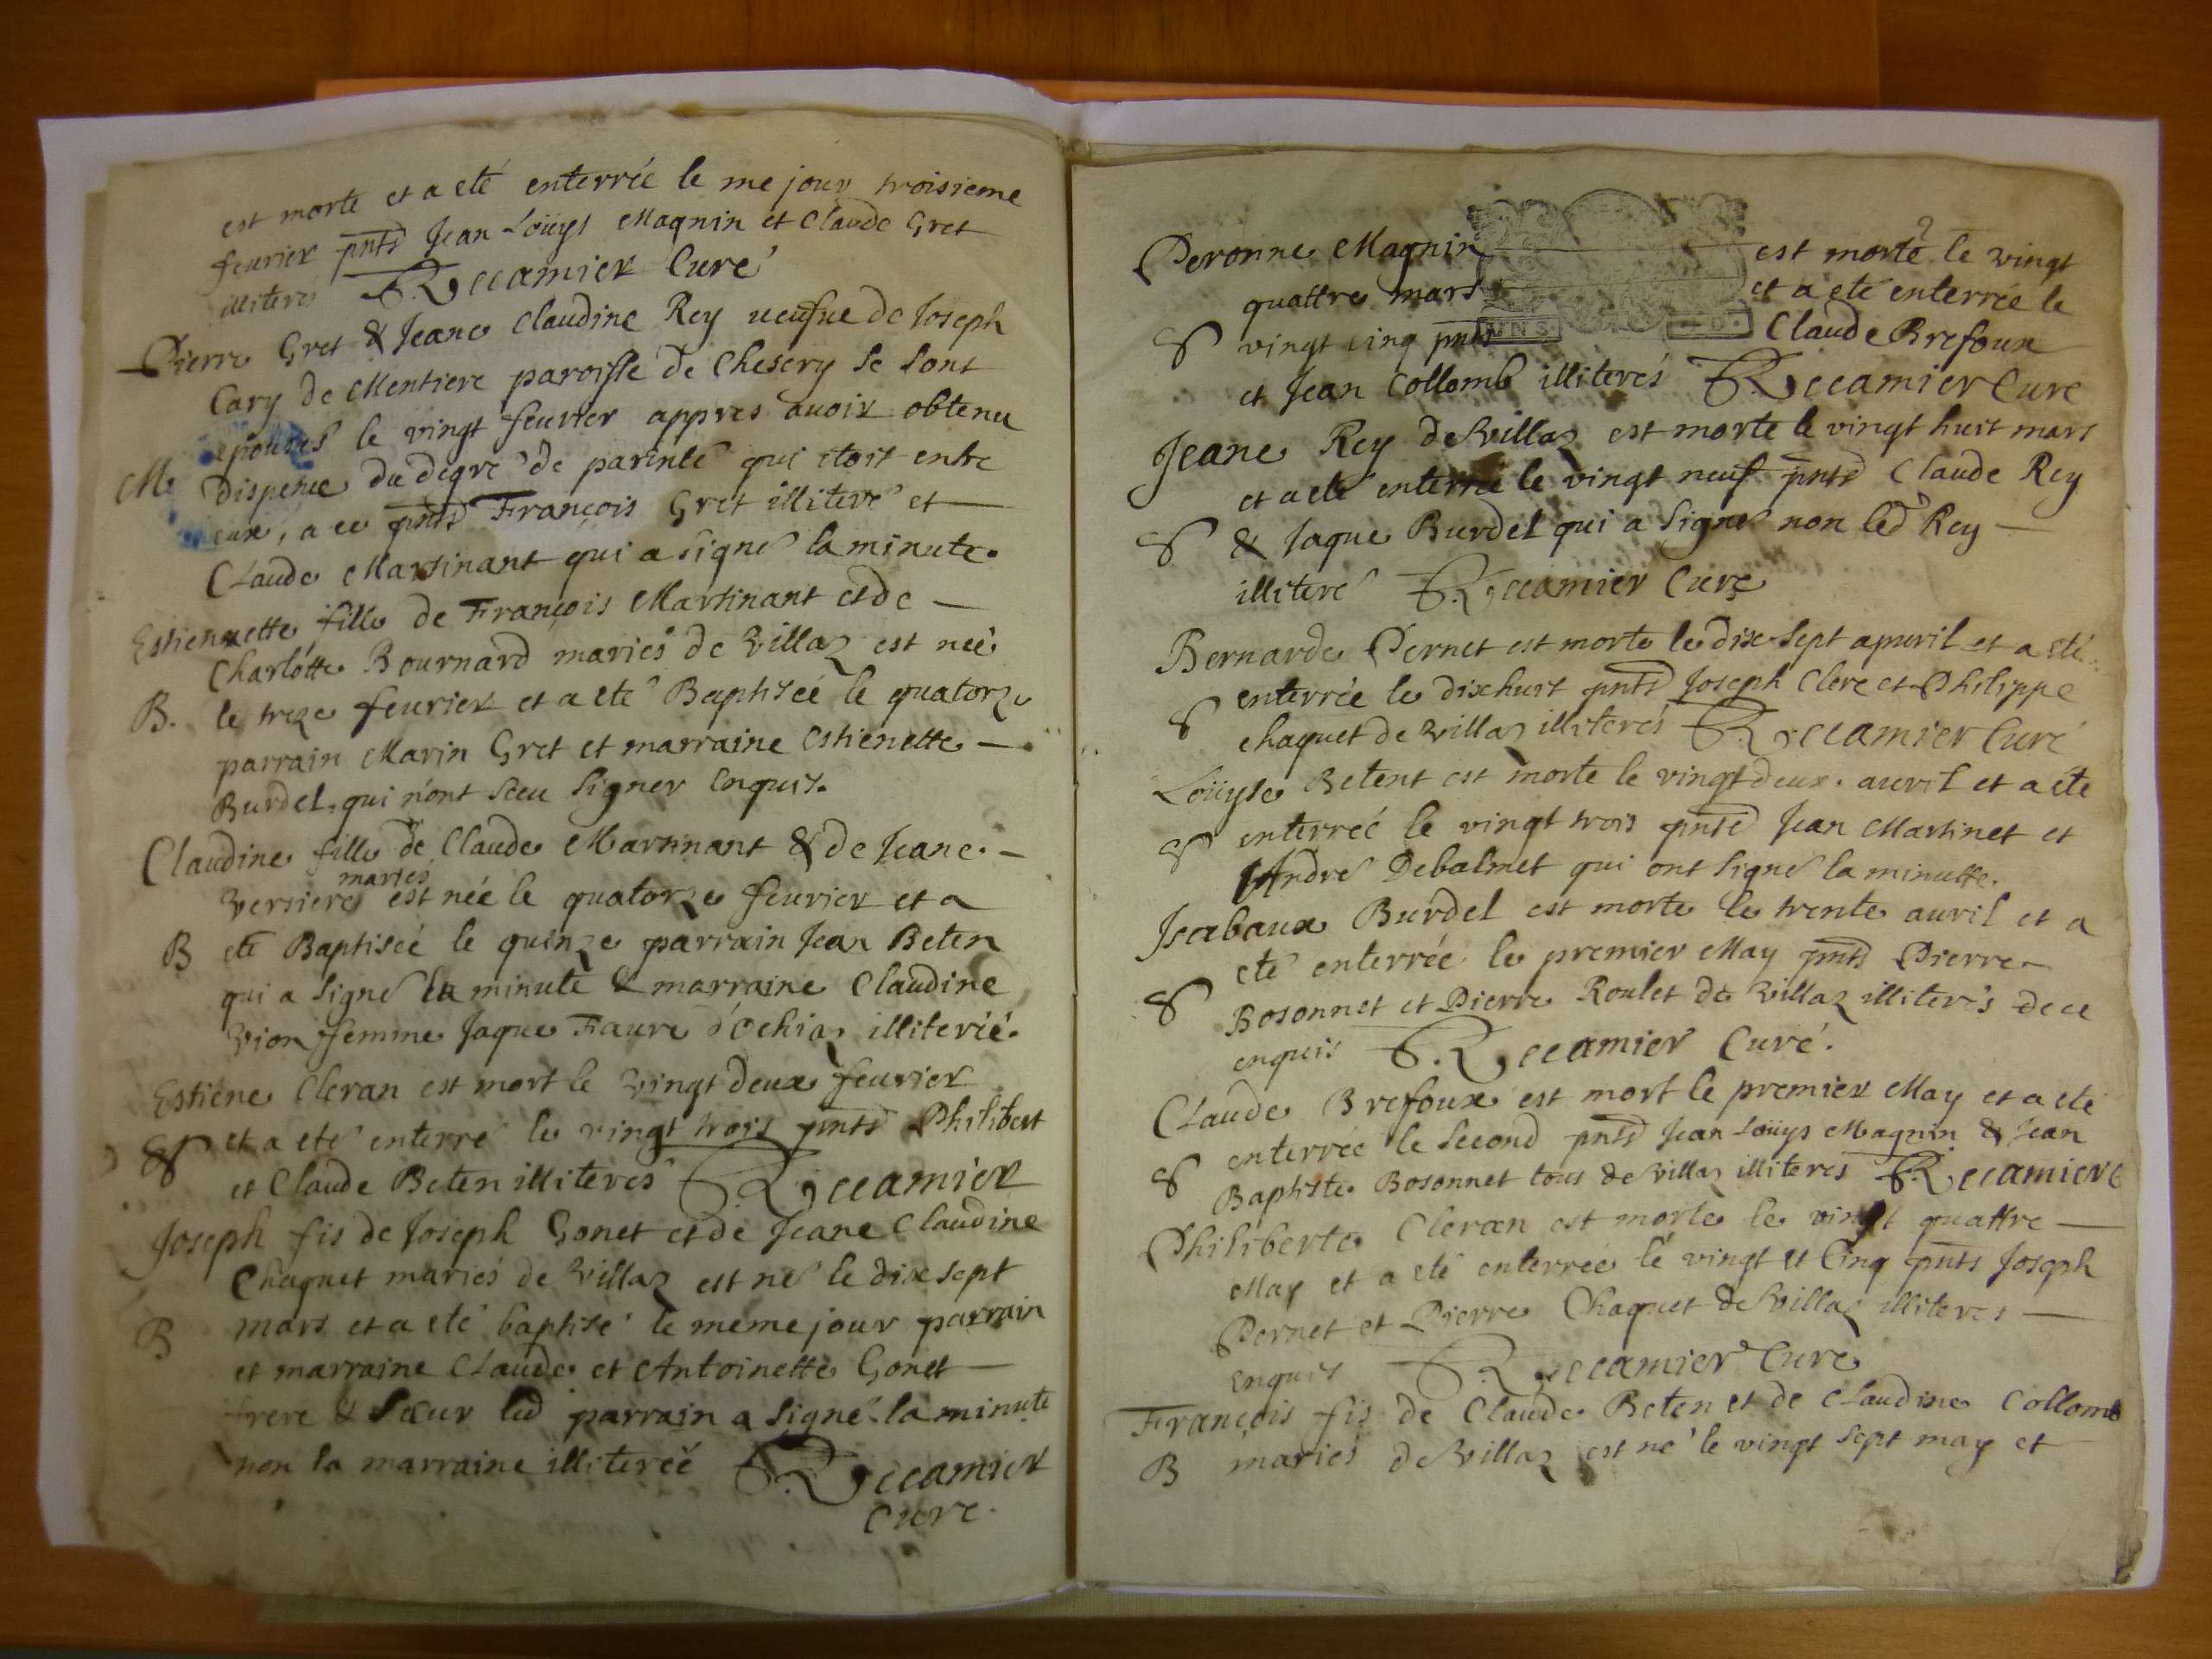 est morte et a eté enterrée le me jour troisieme
feurier pnts Jean Loüys Magnin et Claude Gret
illiteres Reccamier Curé
Pierre Gret & Jeane Claudine Rey ueufue de Joseph
Cary de Mentiere paroisse de Chesery se sont
epousés le vingt feurier appres auoir obtenu
M Dispense du degré de parenté qui etoit entre
eux, a ce pnts François Gret illiteré et
Claude Martinant qui a signé la minute.
Estiennette fille de François Martinant et de
Charlotte Bournard mariés de Villaz est neé
B. le treze feurier et a eté Baptiseé le quatorze
parrain Marin Gret et marraine Estienette
Burdel qui n'ont sceu signer Enquis.
Claudine fille de Claude Martinant & de Jeane
mariés
Versiere est née le quatorze feurier et a
B eté Baptiseé le quinze parrain Jean Beten
qui a signé la minute & marraine Claudine
Vion femme Jaque Faure d'Ochiaz illiterié.
Estiene Cleran est mort le vingt deux feurier
S et a eté enterré le vingt trois pnts Philibert
et Claude Beten illiterés Reccamier
Joseph fis de Joseph Gonet et de Jeane Claudine
Chaquet mariés de Villaz est né le dix sept
B mars et a eté baptisé le meme jour parrain
et marraine Claude et Antoinette Gonet
frere & sœur led parrain a signé la minute
non la marraine illitereé Reccamier
Curé.
Peronne Magnin est morte le vingt
quattre mars et a eté enterrée le
S vingt cinq pnts Claude Brefoux
et Jean Collomb illiterés Reccamier Curé
Jeane Rey de Villaz est morte le vingt huit mars
et a eté enterrée le vingt neuf pnts Claude Rey
S & Jaque Burdel qui a signé non led Rey
illiteré Reccamier Curé
Bernarde Pernet est morte le dix sept apuril et a eté
S enterrée le dixhuit pnts Joseph Clerc et Philippe
chaquet de Villaz illiterés Reccamier Curé
Loüyse Betent est morte le vingt deux auril et a eté
S enterreé le vingt trois pnts Jean Martinet et
André Debalmet qui ont signé la minutte.
Isabaux Burdel est morte le trente auril et a
eté enterrée le premier May pnts Pierre
S Bosonnet et Pierre Roulet de Villaz illiterés de ce
enquis Reccamier Curé.
Claude Brefoux est mort le premier May et a eté
enterrée le second pnts Jean Loüys Magnin & Jean
S Baptiste Bosonnet tous de Villaz illiterés Reccamier C
Philiberte Cleran est morte le vingt quattre
May et a eté enterrée le vingt et Cinq pnts Joseph
Pernet et Pierre Chaquet de Villaz illiteres
Enquis Reccamier Curé
François fis de Claude Beten et de Claudine Collomb
B mariés de Villaz est né le vingt sept may et